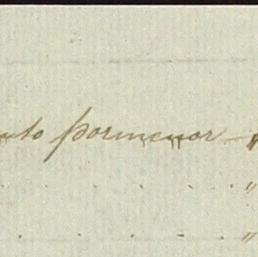 pormenor "
"
"